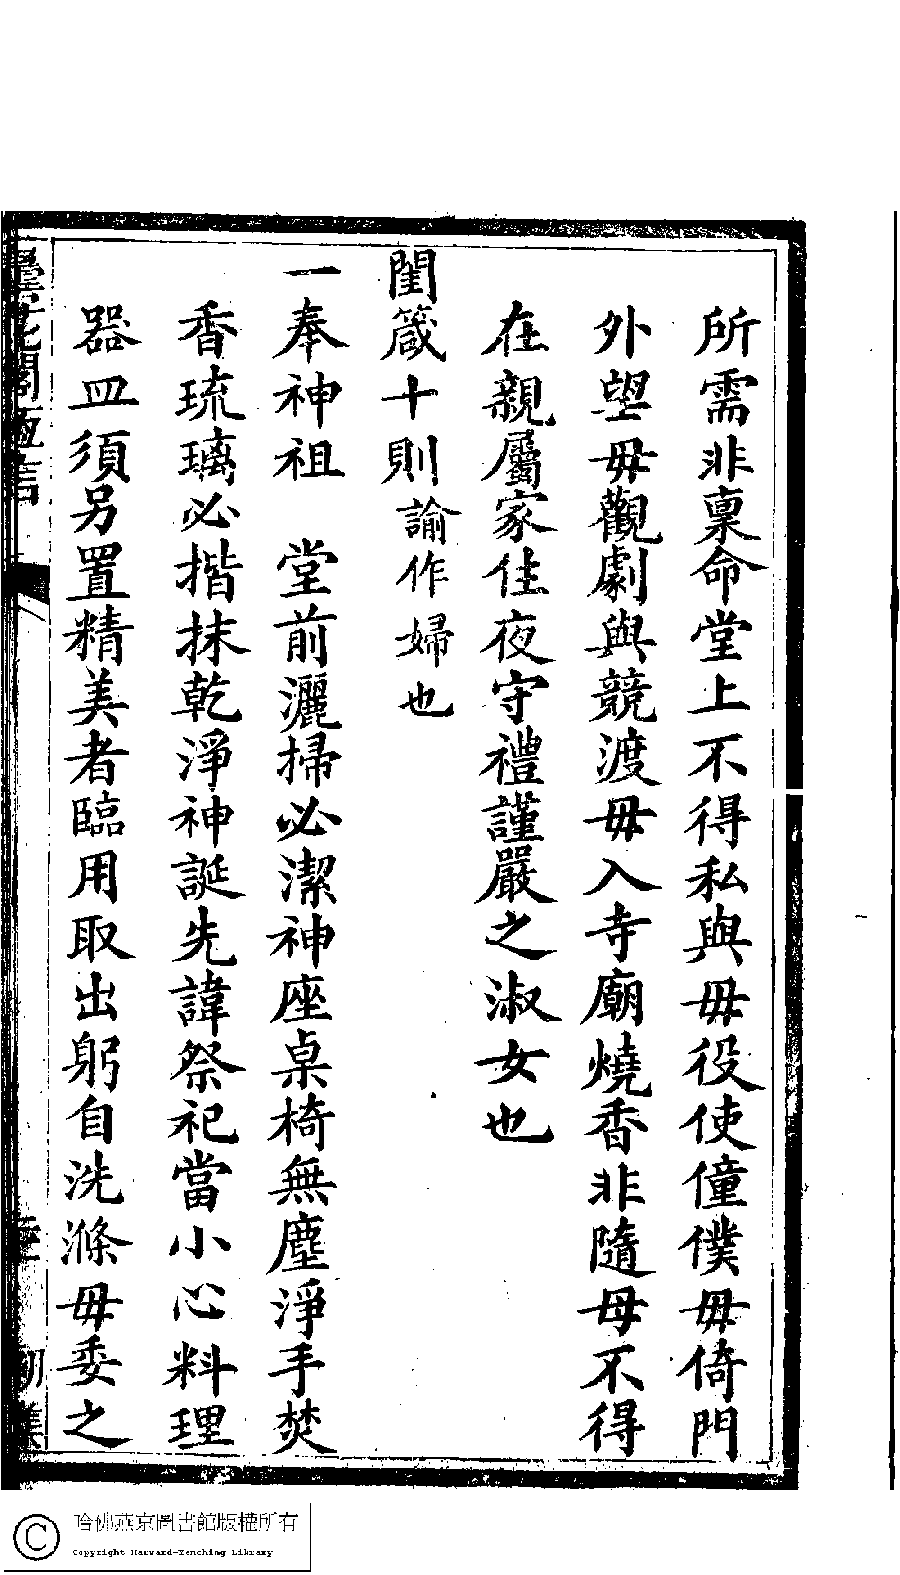 所需非稟命堂上不得私與毋役使僮僕毋倚門
外望毋觀劇與競渡毋入寺廟燒香非隨母不得
在親屬家住夜守禮謹嚴之淑女也
閨箴十則諭作婦也
一奉神祖　堂前灑掃必潔神座桌椅無塵淨手焚
香琉璃必揩抹乾淨神誕先諱祭祀當小心料理
器皿須另置精美者臨用取出躬自洗滌毋委之
哈佛燕京圖書館版權所有
Copyright Harvard-Yenching Library